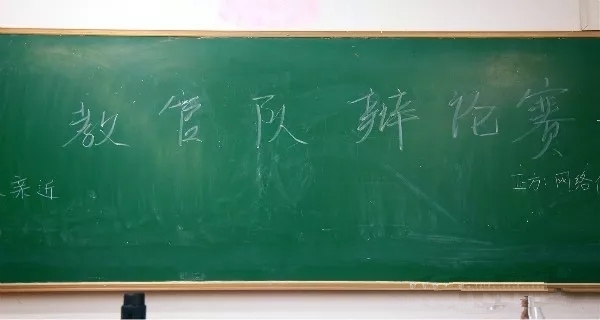 教官队辩论赛
亲近
正方:网络